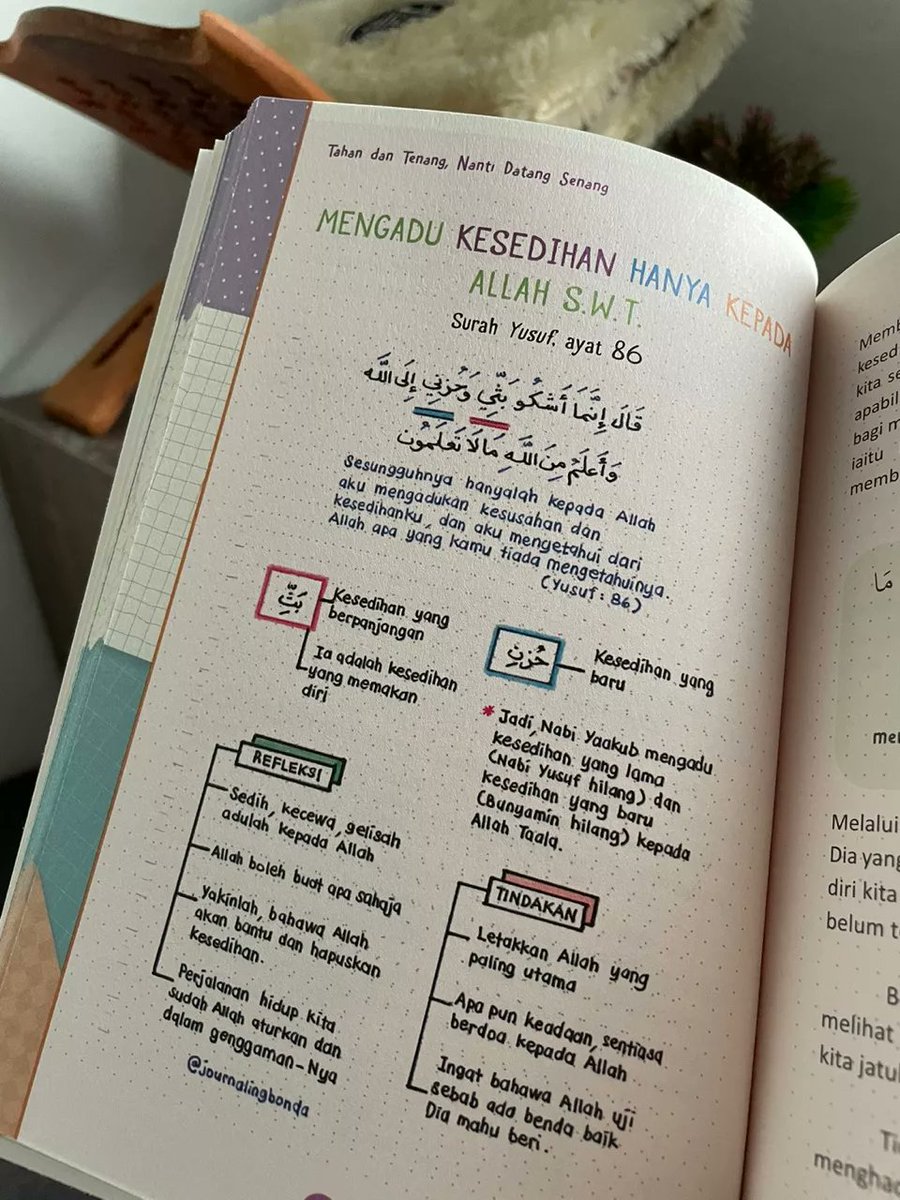 Tahan dan Tenang, Nanti Datang Senang
MENGADU KESEDIHAN HANYA KEPADA
ALLAH S.W.T.
Surah Yusuf, ayat 86
قَالَ إِنَّمَا أَشْكُو بَثِّي وَحُزْنِي إِلَى اللَّه
وَأَعْلَمُ مِنَ اللَّهِ مَا لَا تَعْلَمُونَ
Sesungguhnya hanyalah kepada Allah
aku mengadukan kesusahan dan
kesedihanku, dan aku mengetahui dari
Allah apa yang kamu tiada mengetahuinya.
(Yusuf: 86)
بَثِّ
Kesedihan yang
berpanjangan
Ia adalah kesedihan
yang memakan
diri
حُزْنِ
Kesedihan yang
baru
* Jadi, Nabi Yaakub mengadu
kesedihan yang lama
(Nabi Yusuf hilang) dan
kesedihan yang baru
(Bunyamin hilang) kepada
Allah Taala.
REFLEKSI
Sedih, kecewa, gelisah
adulah kepada Allah
Allah boleh buat apa sahaja
Yakinlah, bahawa Allah
akan bantu dan hapuskan
kesedihan.
Perjalanan hidup kita
sudah Allah aturkan dan
dalam genggaman-Nya
@journalingbonda
TINDAKAN
Letakkan Allah yang
paling utama
Apa pun keadaan, sentiasa
berdoa kepada Allah
Ingat bahawa Allah uji
sebab ada benda baik
Dia mahu beri.
kita
bagi
iaitu
مَا
Melalui
Dia yang
diri kita
belum
melihat
kita